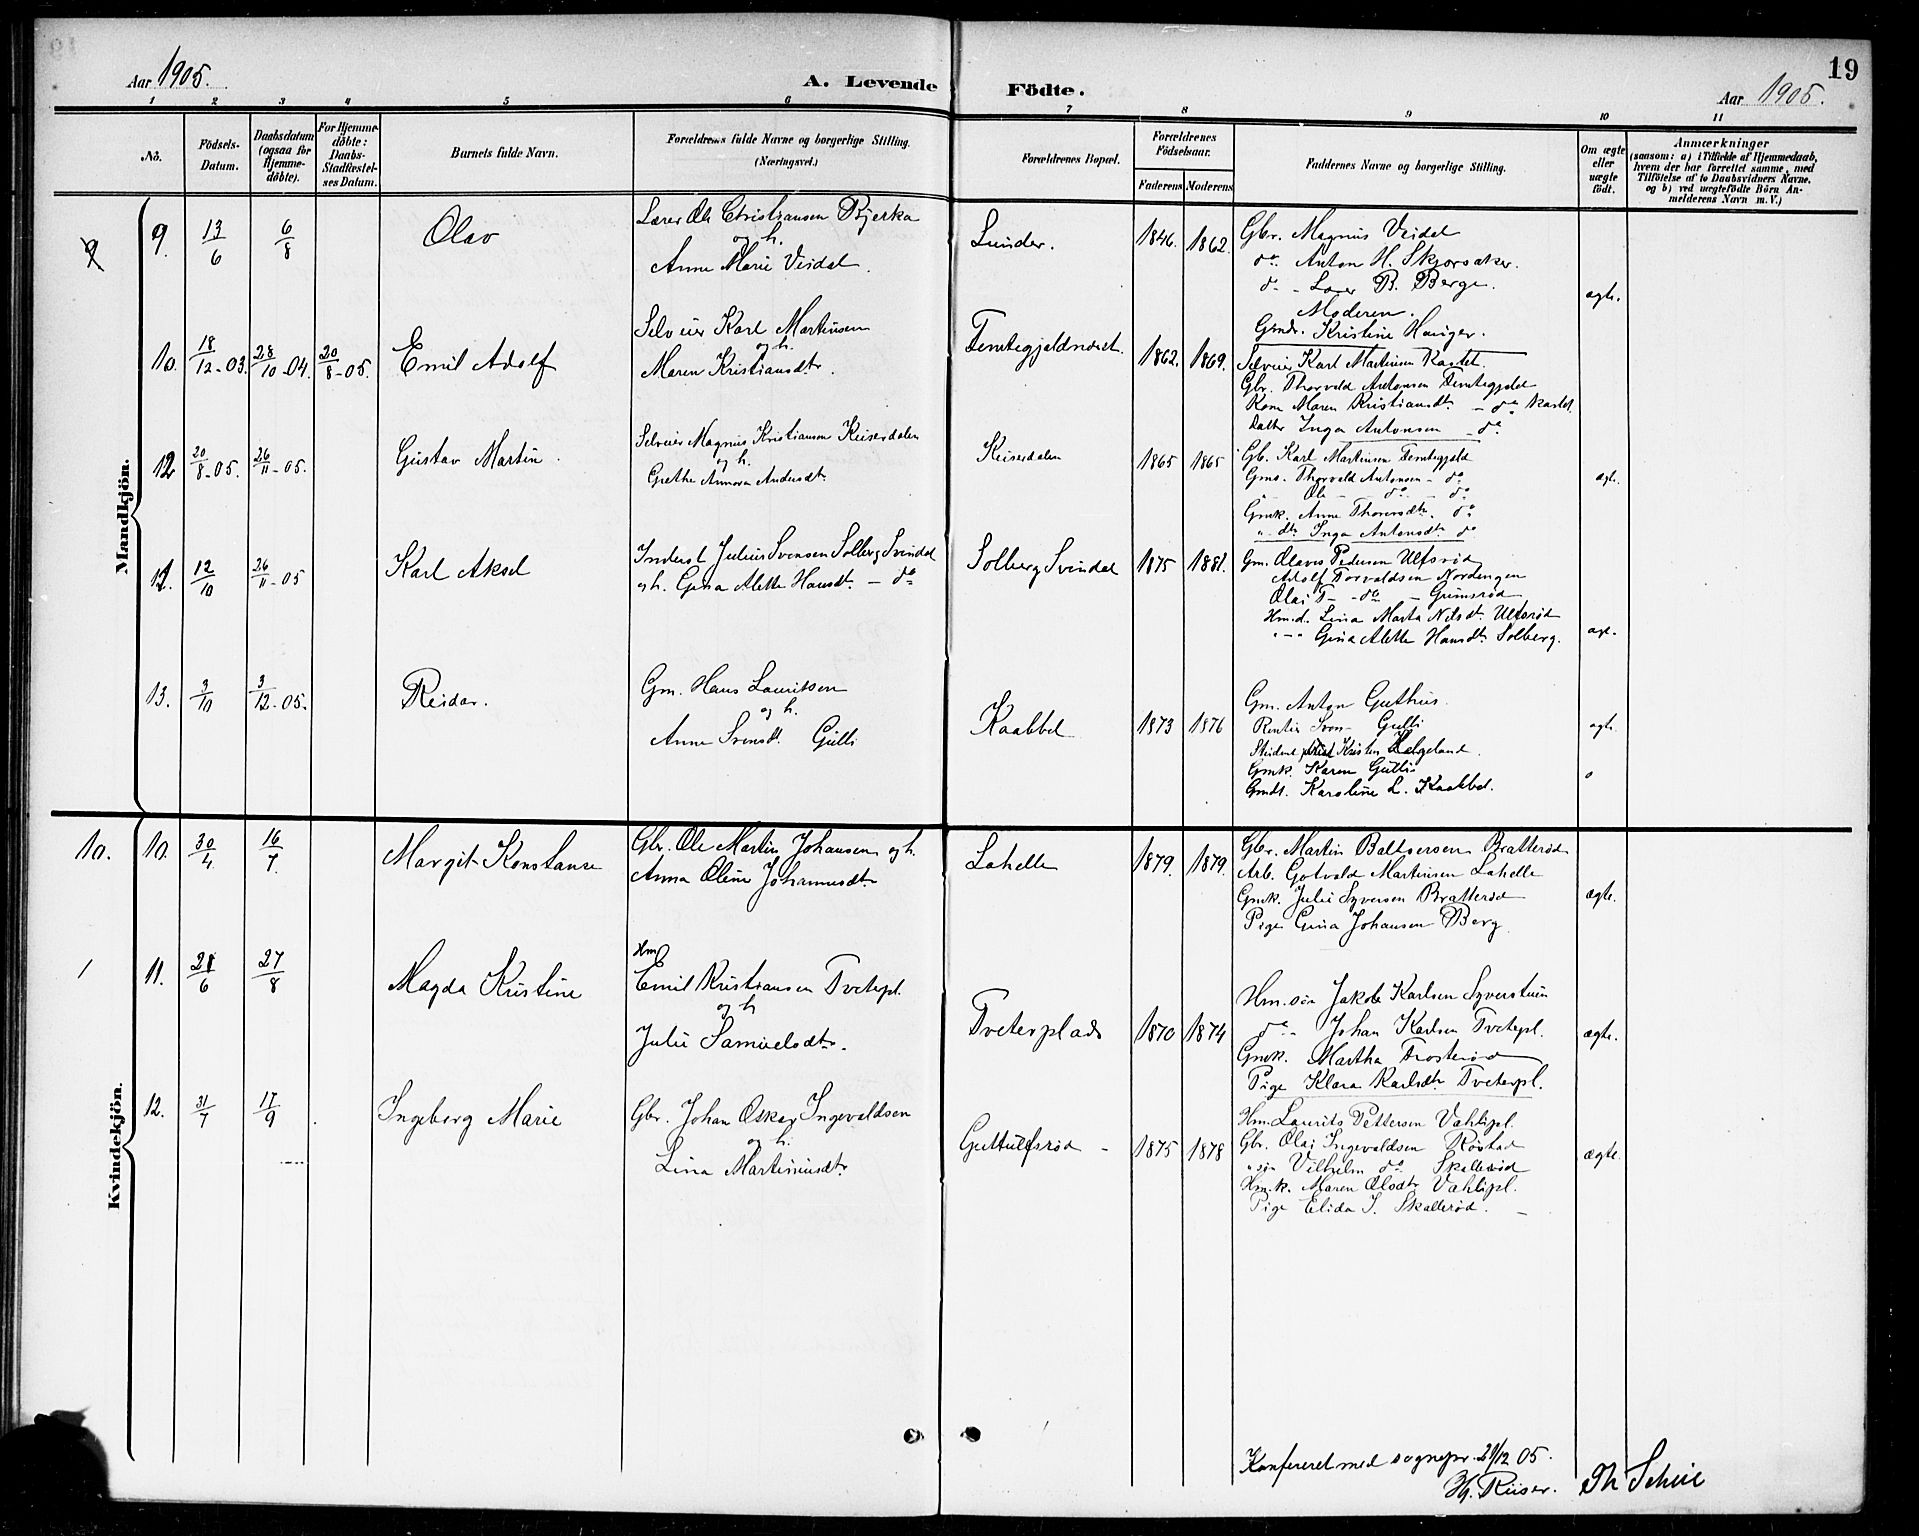 Aar 1905.
A. Levende Födte.
Aar 1905.
19
1 2 3 4 5 6 7 8 9 10 11
No.
Födsels-Datum.
Daabsdatum (ogsaa for Hjemme-döbte).
For Hjemme-döbte: Daabs-Stadfæstel-ses Datum.
Barnets fulde Navn.
Forældrenes fulde Navne og borgerlige Stilling. (Næringsvei.)
Forældrenes Bopæl.
Forældrenes Födselsaar.
Faderens Moderens
Faddernes Navne og borgerlige Stilling.
Om ægte eller uægte födt.
Anmærkninger
(saasom: a) i Tilfælde af Hjemmedaab,
hvem der har forrettet samme, med
Tilföielse af to Daabsvidners Navne,
og b) ved uægtefödte Börn An-
melderens Navn m. V.)
Mandkjön.
9 9. 13/6 6/8 Olav
Lærer Ole Christiansen Bjerka
og h.
Anne Marie Veidal.
Lunder. 1846. 1862.
Gbr. Magnus Veidal
do. Anton H. Skjorsaker.
do - Lærer B. Berge.
Moderen.
Gmdr. Kristine Hauger.
ægte.
10. 18/12-03. 28/10-04. 20/8-05. Emil Adolf
Selveier Karl Martinsen
og h.
Maren Kristiansdtr.
Femtegjeldnordt. 1862. 1869.
Selveier Karl Martinsen Kastet.
Gbr. Thorvald Antonsen Femtegjeld
Kone Maren Kristiansdtr. - do Kastet.
Datter Inga Antonsen - do
12 20/8-05. 26/11-05. Gustav Martin.
Selveier Magnus Kristiansen Keiserdalen
og h.
Grethe Annora Andersdtr.
Keiserdalen 1865 1865
Gb. Karl Martinsen Femtegjeld
Gms. Thorvald Antonsen - do
" Ole - do - do
Gmk. Anne Thorersdtr. do
" dtr. Inga Antonsdtr. do
ægte.
12. 12/10 26/11-05 Karl Aksel
Inderst Julius Svensen Solberg Svindal
og h. Gina Alette Hansdtr. - do
Solberg Svindal 1875 1881.
Gm. Olaves Pedersen Ulfsrød
Adolf Torvaldsen Nordengen
Olai T- -do - Grimsrød
Hm.d. Lina Marta Nilsdtr. Ulfsrød
" - " Gina Alette Hansdtr. Solberg.
ægt.
13. 3/10 3/12-05. Reidar.
Gm. Hans Lauritsen
og h.
Anne Svensdt. Gulli
Kaabbel 1873 1876
Gm. Anton Guthus.
Rentier Sven Gulli
Student Kristen Helgeland.
Gmk. Karen Gulli
Gmdt. Karoline L. Kaabbel.
ægte.
Kvindekjön.
10. 10. 30/4 16/7. Margit Konstanse
Gbr. Ole Martin Johansen og h.
Anna Oline Johannesdtr.
Lahelle 1879. 1879.
Gbr. Martin Baltsersen Bratterød
Arb. Gotvald Martinsen Lahelle
Gmk. Julie Syversen Bratterød
Pige Gina Johansen Berg
ægte.
1 11. 21/6 27/8 Magda Kristine
Hm
Emil Kristiansen Tveterpl.
og h.
Julie Samuelsdtr.
Tveterplads 1870 1874
Hm. søn Jakob Karlsen Syverstuen
do - Johan Karlsen Tveterpl.
Gmk. Martha Trosterød
Pige Klara Karlsdtr. Tveterpl.
ægte.
12. 31/7 17/9 Ingeborg Marie
Gbr. Johan Oskar Ingevaldsen
og h.
Lina Martiniusdtr.
Guttulfsrød - 1875 1878
Hm. Laurits Pettersen Vahlipl.
Gbr. Olai Ingevaldsen Røstad
" søn Vilhelm do Skallerød
Hm.k. Maren Olsdtr. Vahlipl.
Pige Elida I. Skallerød. -
ægte.
Konfereret med sognepr. 29/12 05.
Hj. Riiser. Th Schie